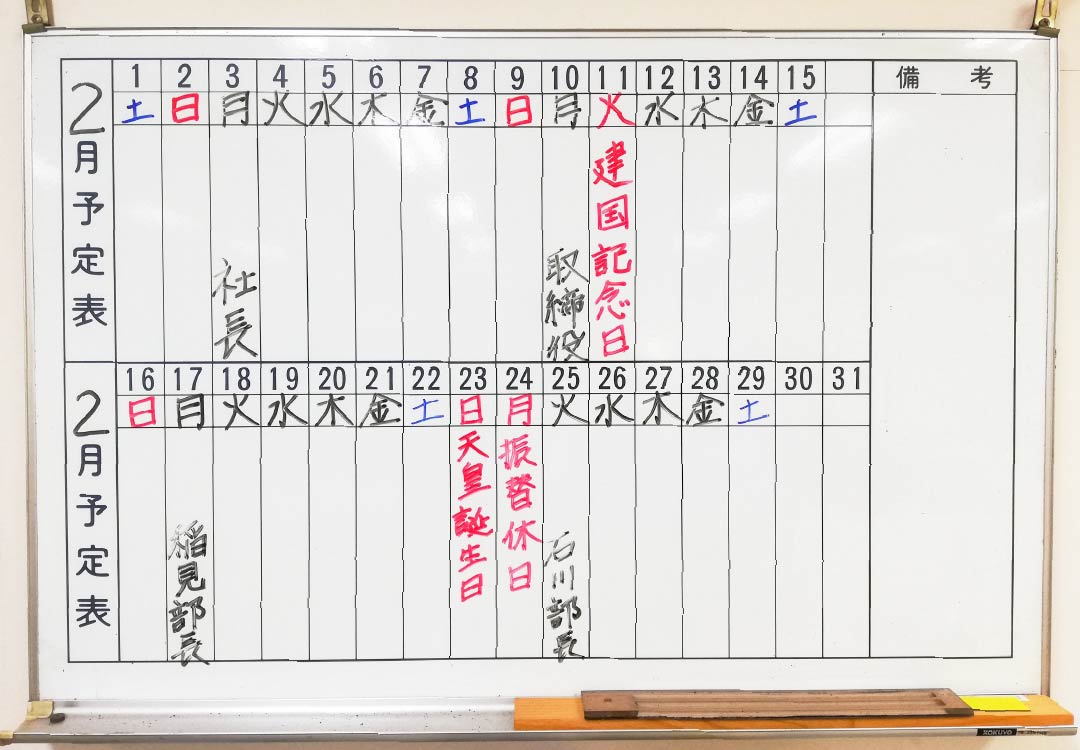 2月予定表
1 2 3 4 5 6 7 8 9 10 11 12 13 14 15 備考
土 日 月 火 水 木 金 土 日 月 火 水 木 金 土
社長
取締役
建国記念日
2月予定表
16 17 18 19 20 21 22 23 24 25 26 27 28 29 30 31
日 月 火 水 木 金 土 日 月 火 水 木 金 土
稲見部長
天皇誕生日
振替休日
石川部長
KOKUYO